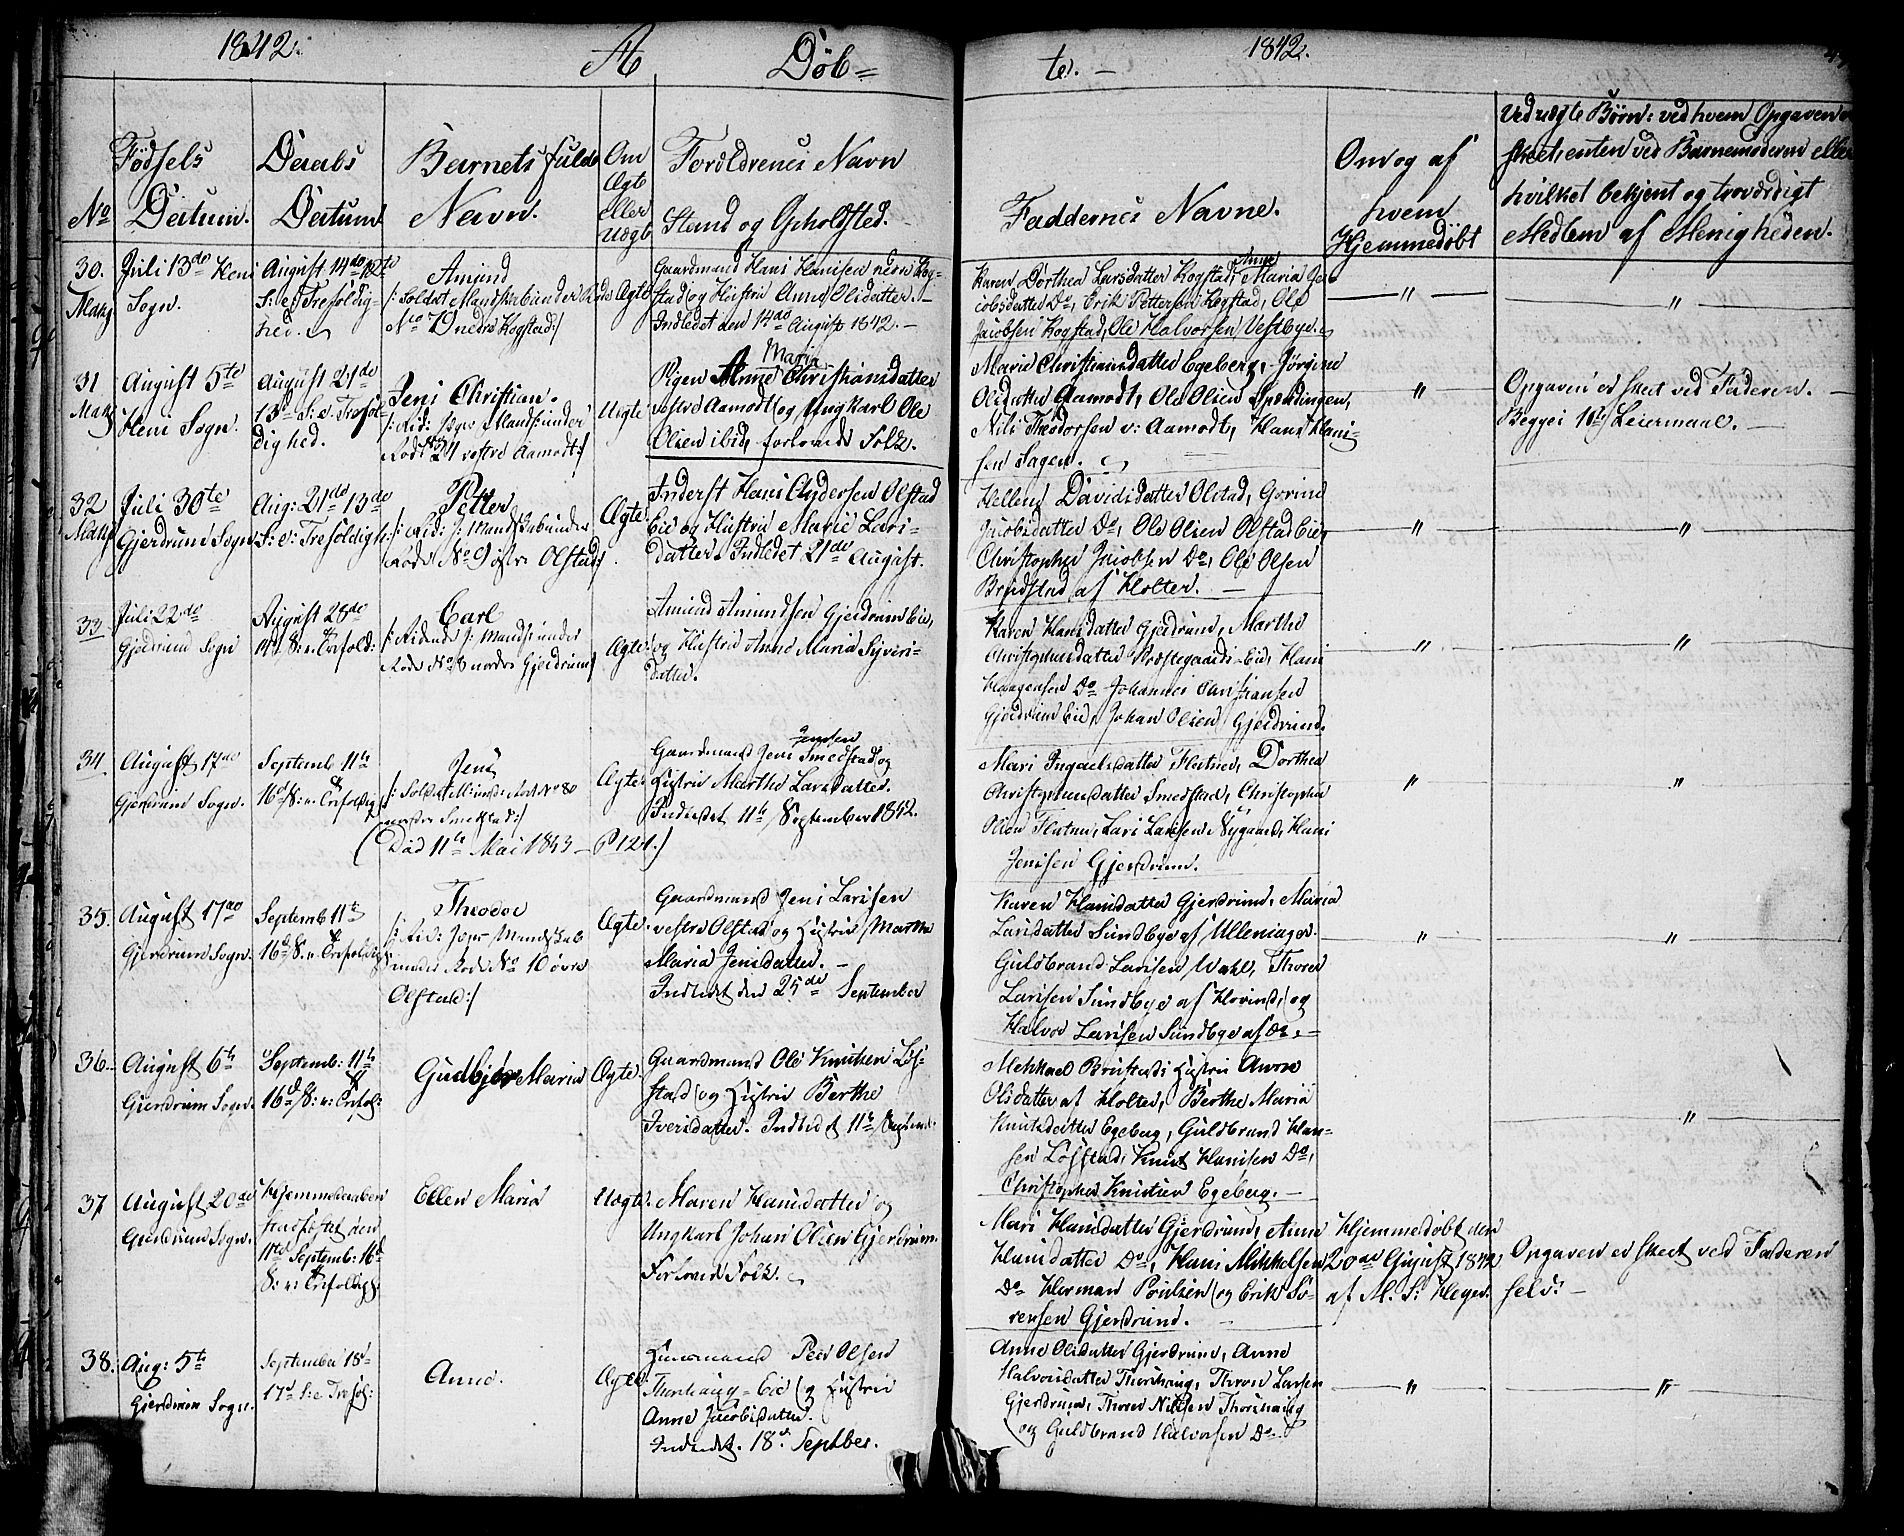 1842.
A
Döb=
te. –
1842.
No
Födsels
Datum.
Daabs
Datum
Barnets fulde
Navn.
Om
Ægte
eller
Uægte
Forældrenes Navn
Stand og Opholdsted.
Faddernes Navne.
Om og af
hvem
Hjemmedöbt
Ved uægte Børn: ved hvem Opgaven er
skeet, enten ved Barnemoderen eller
hvilket bekjent og troværdigt
Medlem af Menigheden.
30.
Juli 13de Heni
Sogn.
August 14de 12te
S: e: Trefoldig-
hed.
Amund
No 7 Nedre Kogstad:/
Ægte
Gaardmand Hans Hansen nedre Kog-
stad og Hustru Anne Olsdatter. –
Indledet den 14de August 1842. –
Karen Dorthea Larsdatter Kogstad, Anne Maria Ja-
cobsdatter Do, Erik Pettersen Kogstad, Ole
Jacobsen Kogstad, Ole Halvorsen Vestbye.
"
"
31
August 5te
Heni Sogn.
August 21de
13de S: e: Trefol-
dighed.
Jens Christian.
Rode No 21 vestre Aamodt:/
Uægte
Maria
Pigen Anne Christiansdatter
vestre Aamodt og Ungkarl Ole
Olsen ibid, forlovede Folk.
Marie Christiansdatter Egeberg, Jørgine
Olsdatter Aamodt, Ole Olsen Spærdingen,
Nils Theodorsen v: Aamodt, Hans Han-
sen Hagen.
"
Opgaven er skeet ved Faderen. –
Begges 1ste Leiermaal. –
32
Juli 30te
Gjerdrum Sogn
Aug: 21de 13de
S: e: Trefoldigh:
Petter
/: Rid: /: Mandskab under
Rode No 9 østre Olstad:/
Ægte
Inderst Hans Andersen Olstad
Eie og Hustru Marie Lars-
datter. Indledet 21de August.
Hellene Davidsdatter Olstad, Gorine
Jacobsdatter Do, Ole Olsen Olstad Eie,
Christopher Jacobsen Do, Ole Olsen
Brudstad af Holter. –
"
"
33
Juli 22de
Gjerdrum Sogn
August 28de
14d S: e: Trefold:
Carl
Rode No 8 nordre Gjerdrum:/
Ægte
Amund Amundsen Gjerdrum Eie,
og Hustru Anne Maria Syvers-
datter.
Karen Hansdatter Gjerdrum, Marthe
Christophersdatter Præstegaards-Eie, Hans
Haagensen Do Johannes Christiansen
Gjerdrum Eie, Johan Olsen Gjerdrum.
"
"
34
August 17de
Gjerdrum Sogn.
Septemb 11te
16d S: e: Trefoldigh:
Jens
(Død 11te Mai 1843 – P 121.)
Ægte
Jensen
Gaardmand Jens Smedstad og
Hustru Marthe Larsdatter.
Indledet 11te September 1842.
Mari Ingaelsdatter Flatner, Dorthea
Christophersdatter Smedstad, Christopher
Olsen Flatner, Lars Larsen Nygaard, Hans
Jensen Gjerdrum.
"
"
35.
August 17de
Gjerdrum Sogn.
Septemb 11te
16d S. e. Trefoldigh:
Theodor
under Rode No 10 øvre
Olstad:/
Ægte.
Gaardmand Jens Larsen
vestre Olstad og Hustru Marthe
Maria Jensdatter. –
Indledet den 25de September
Karen Hansdatter Gjerdrum, Maria
Larsdatter Sundbye af Ullensager.
Guldbrand Larsen Wahl, Thorer
Larsen Sundbye af Hovind, og
Halvor Larsen Sundbye af Do. –
"
"
36.
August 6te
Gjerdrum Sogn.
Septemb: 11te
16d S: e: Trefol:
Gudbjør Maria
Ægte
Gaardmand Ole Knutsen Løs-
stad og Hustru Berthe
Iversdatter. Indledet 11te Septembr.
Mikkael Brustads Hustru Anne
Olsdatter af Holter, Berthe Maria
Knutsdatter Egeberg, Guldbrand Han-
sen Løsstad, Knut Hansen Do,
Christopher Knutsen Egeberg. –
"
37
August 20de
Gjerdrum Sogn.
Hjemmedaaben
stadfæstet den
11te Septemb: 16d
S: e: Trefoldigh:
Ellen Maria
Uægte.
Maren Hansdatter og
Ungkarl Johan Olsen Gjerdrum.
Forlovede Folk.
Mari Hansdatter Gjerdrum, Anne
Hansdatter Do, Hans Mikkelsen
Do Herman Poulsen og Erik Sø-
rensen Gjerdrum. –
Hjemmedöbt den
20de August 1842
af M. S. Heyer.
Opgaven er skeet ved Faderen
selv. –
38.
Aug: 5te
Gjerdrum Sogn.
September 18d
17d S: e Trefol:
Anne.
Ægte
Huusmand Peer Olsen
Thorshaug-Eie og Hustru
Anne Jacobsdatter.
Indledet. 18d Septber.
Anne Olsdatter Gjerdrum, Anne
Halvorsdatter Thorshaug, Thron Larsen
Gjerdrum, Thoren Nilsen Thorshaug
og Guldbrand Halvorsen Do.
"
"